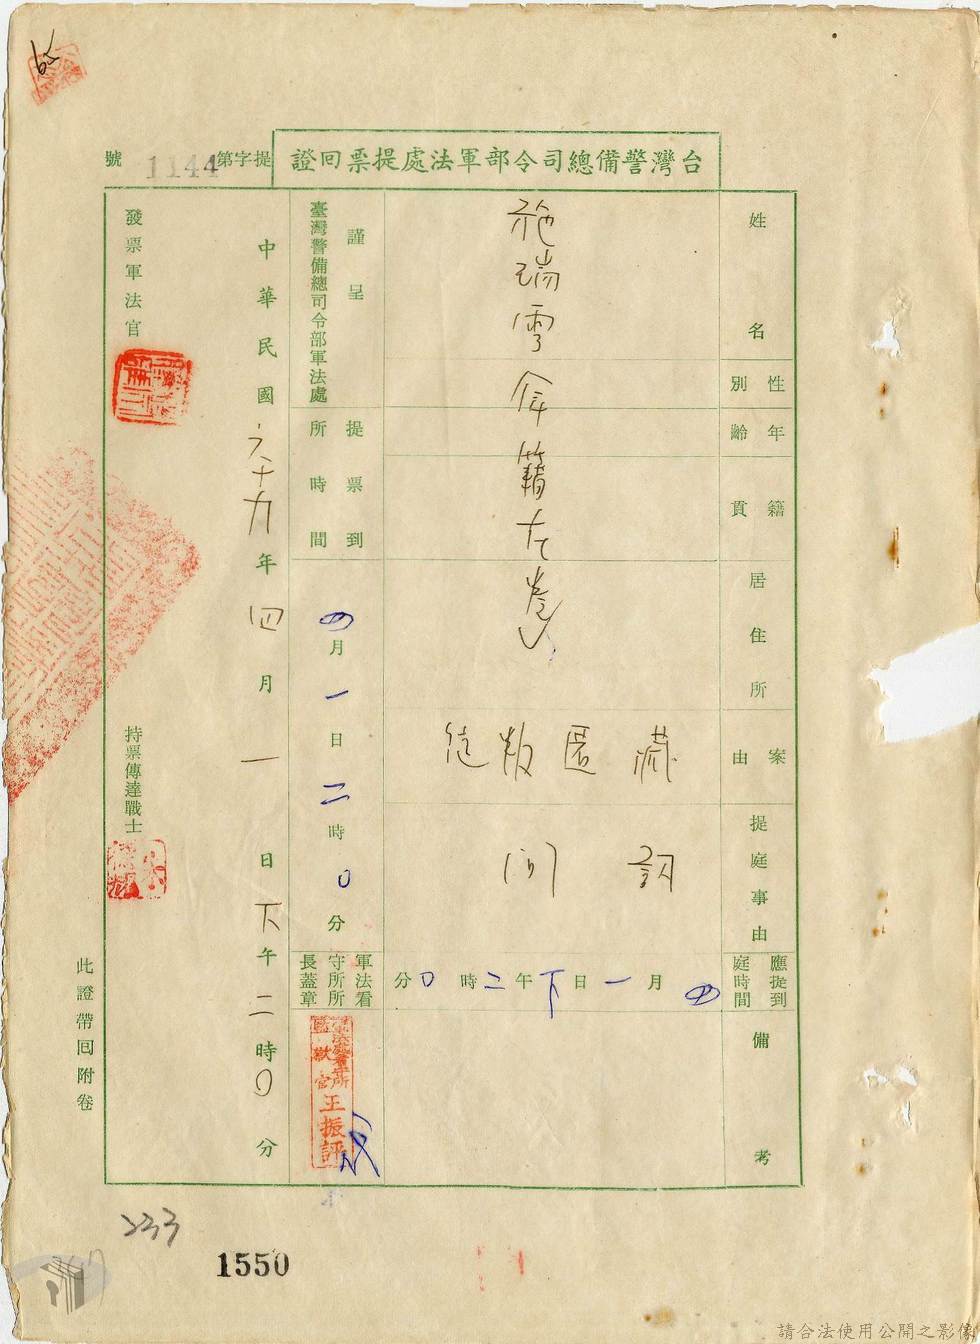 台灣警備總司令部軍法處提票回證
提字第1144號
姓名
施瑞雲
性別
年齡
籍貫
年籍在卷
居住所
案由
藏匿叛徒
提庭事由
訊問
應提到庭時間
四月一日下午二時0分
備考
謹呈
臺灣警備總司令部軍法處
提票到所時間
四月一日二時0分
軍法看守所所長蓋章
王振評
中華民國六十九年四月一日下午二時0分
發票軍法官
持票傳達戰士
此證帶回附卷
65
233
1550
請合法使用公開之影像